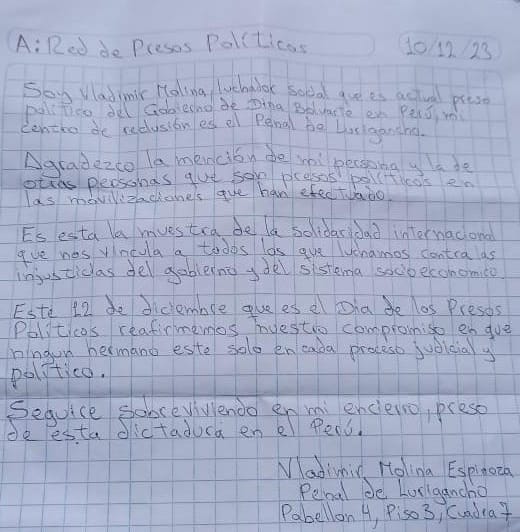 A: Red de Presos Políticos 10/12/23
Soy Vladimir Molina, luchador social que es actual preso
político del Gobierno de Dina Boluarte en Perú, mi
centro de reclusión es el Penal de Lurigancho.
Agradezco la mención de mi persona y la de
otras personas que son presos políticos en
las movilizaciones que han efectuado.
Es esta la muestra de la solidaridad internacional
que nos vincula a todos los que luchamos contra las
injusticias del gobierno y del sistema socioeconomico
Este 12 de diciembre que es el Dia de los Presos
Políticos reafirmemos nuestro compromiso en que
ningun hermano este solo en cada proceso judicial y
político.
Seguire sobreviviendo en mi encierro, preso
de esta dictadura en el Perú.
Vladimir Molina Espinoza
Penal de Lurigancho
Pabellon 4, Piso 3, Cuadra 7